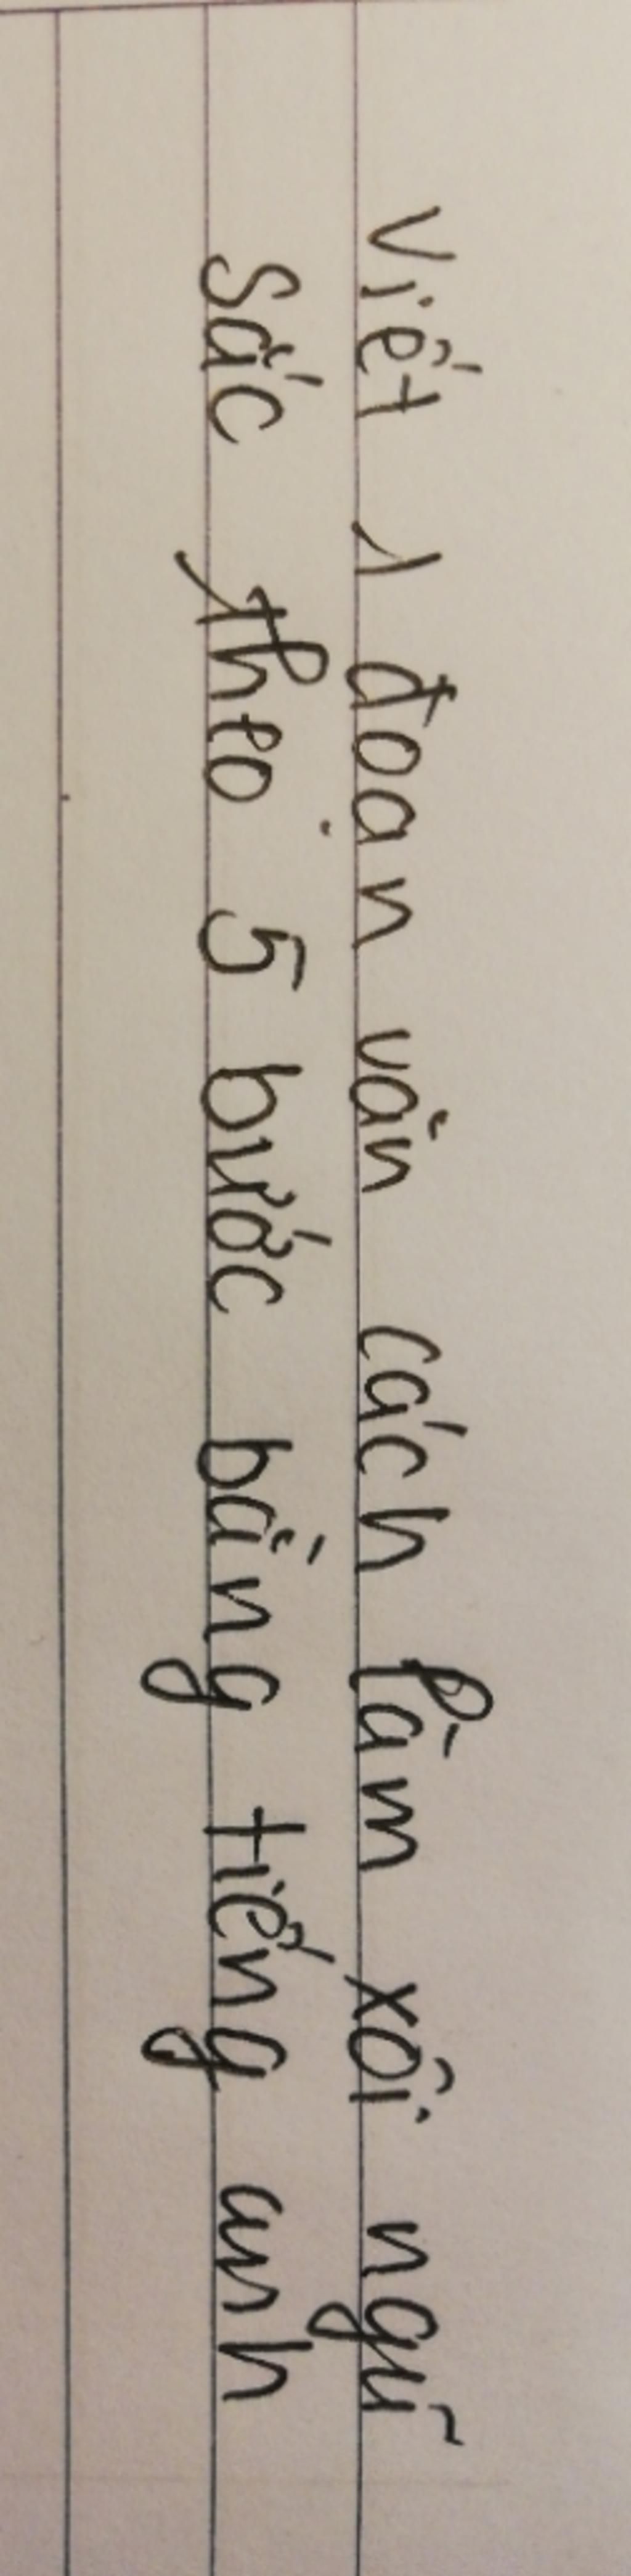 Viết 1 đoạn văn cách làm xôi ngũ
sắc theo 5 bước bằng tiếng anh